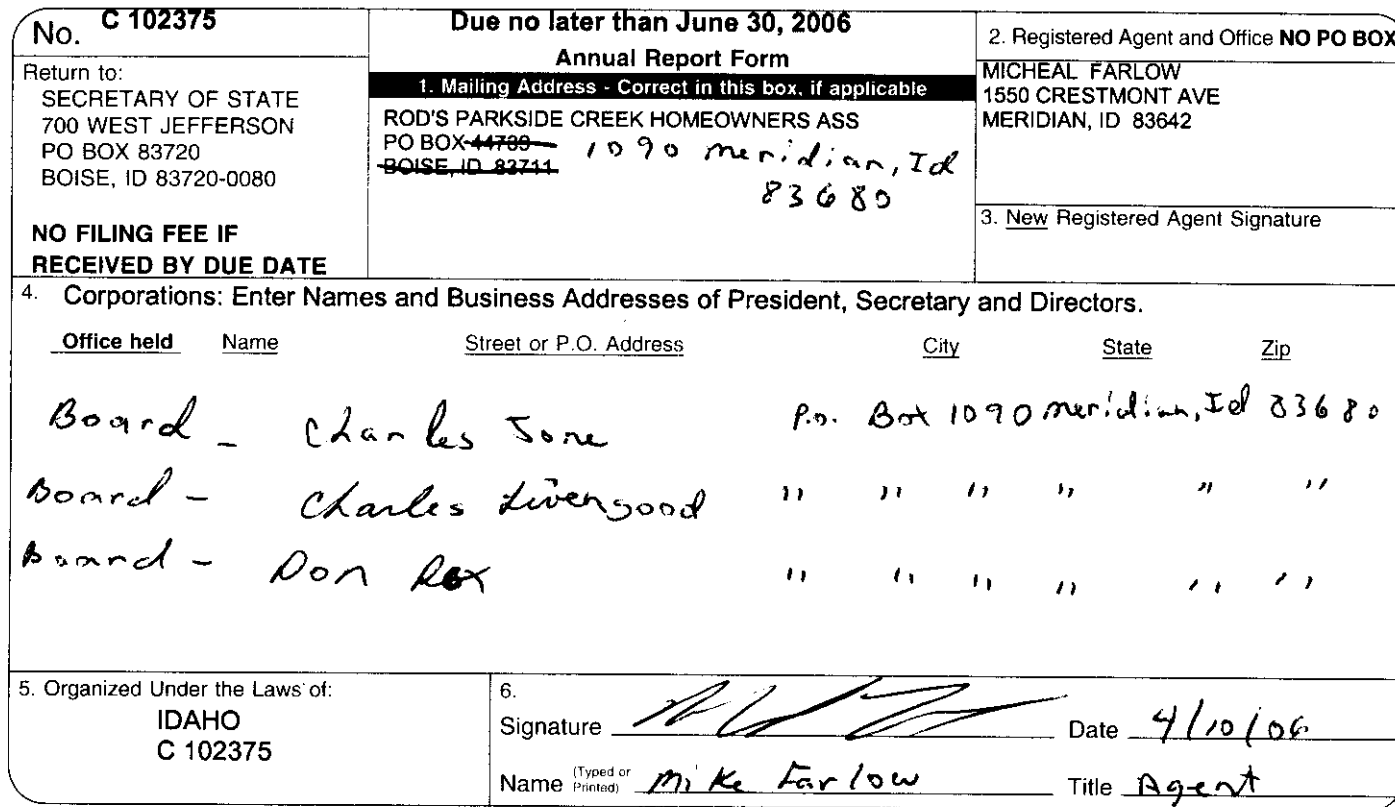 No. C 102375
Return to:
SECRETARY OF STATE
700 WEST JEFFERSON
PO BOX 83720
BOISE, ID 83720-0080
NO FILING FEE IF
RECEIVED BY DUE DATE
Due no later than June 30, 2006
Annual Report Form
1. Mailing Address - Correct in this box, if applicable
ROD'S PARKSIDE CREEK HOMEOWNERS ASS
PO BOX 44789 1090 meridian, Id
BOISE, ID 83711
83680
2. Registered Agent and Office NO PO BOX
MICHEAL FARLOW
1550 CRESTMONT AVE
MERIDIAN, ID 83642
3. New Registered Agent Signature
4. Corporations: Enter Names and Business Addresses of President, Secretary and Directors.
Office held Name Street or P.O. Address City State Zip
Board - Charles P.O. Box 1090 meridian, Id 83680
Board - Charles Livengood " " " " " "
Board - Don " " " " " "
5. Organized Under the Laws of:
IDAHO
C 102375
6.
Signature Date 4/10/06
Name (Typed or Printed) Mike Farlow Title Agent